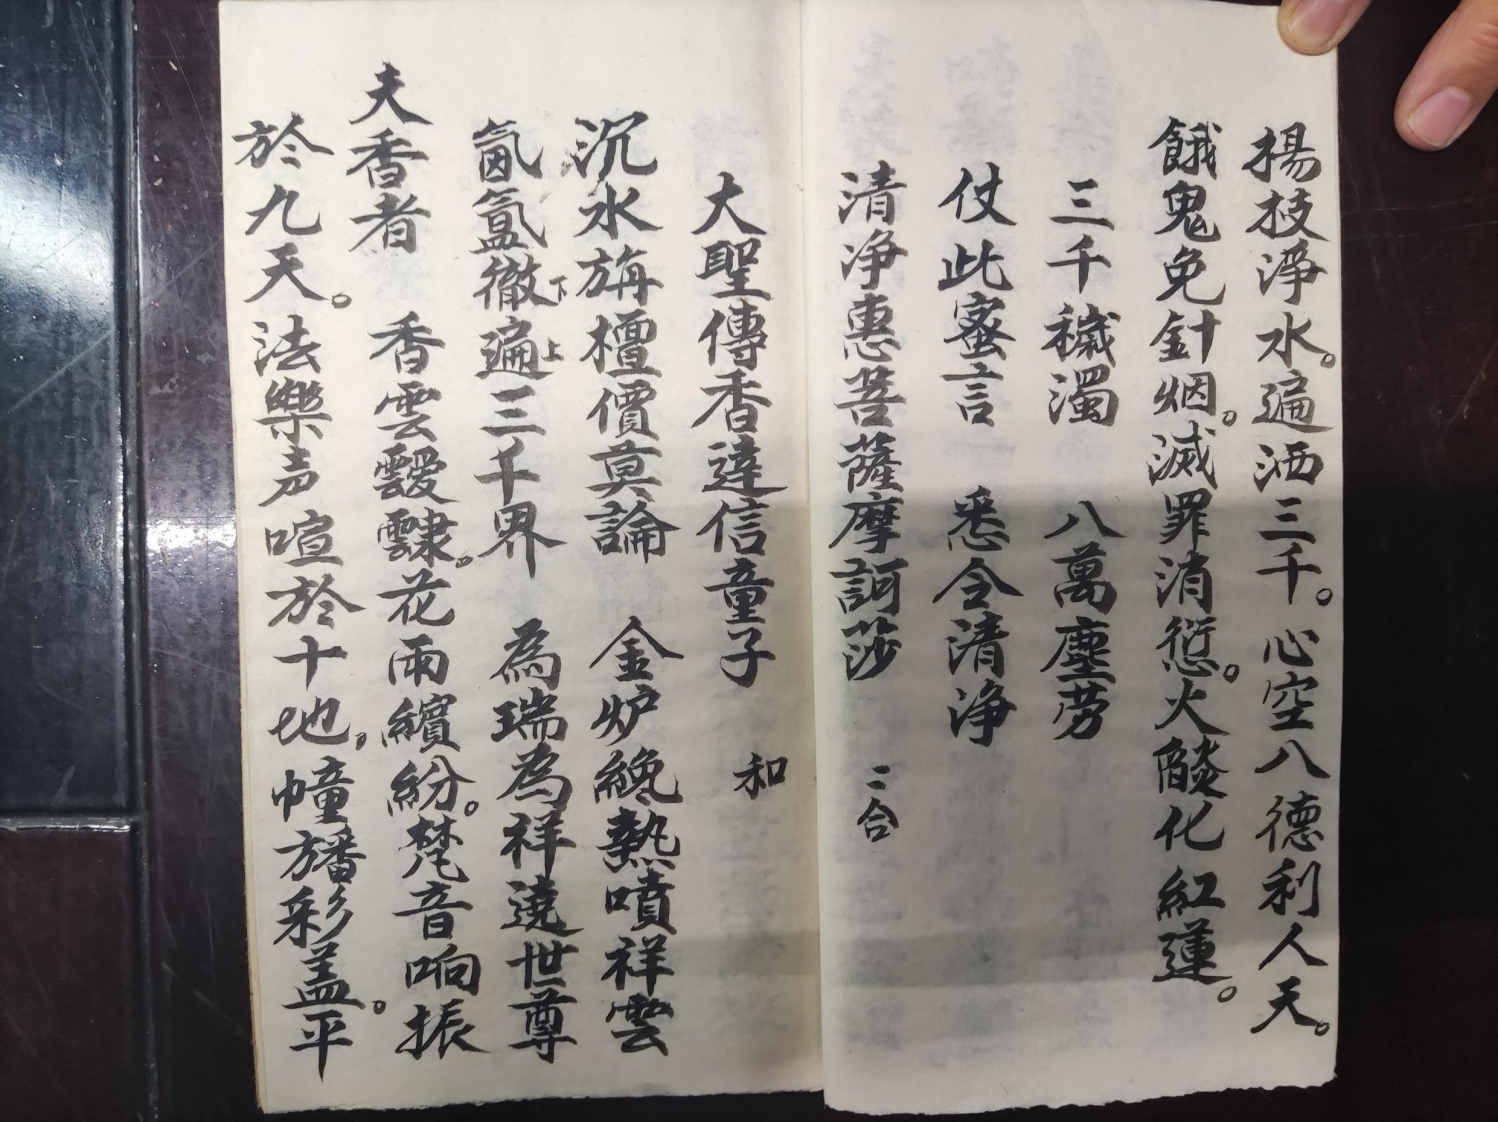 揚枝淨水。遍洒三千。心空八德利人天。
餓鬼免針烟。滅罪消愆。火酸化紅蓮。
三千穢濁　八萬塵劳
仗此蜜言　悉令清净
清净惠菩薩摩訶莎　二合
大聖傳香達信童子　和
沉水旃檀價莫論　金炉纔熱噴祥雲
氤氳徹下遍上三千界　為瑞為祥遶世尊
夫香者　香雲靉靆。花雨繽紛。梵音响振
於九天。法樂声喧於十地，幢旛彩盖。平